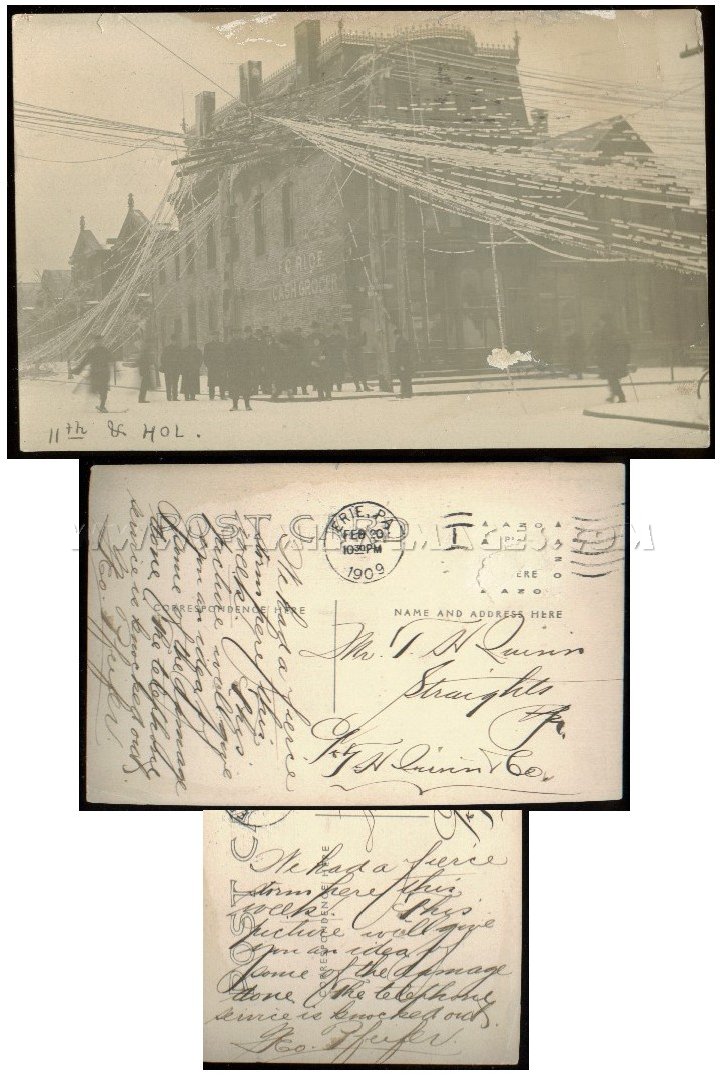 RICE
CASH GROCER
11th & HOL.
POST CARD
ERIE, PA.
FEB 20
10 30 PM
1909
CORRESPONDENCE HERE
NAME AND ADDRESS HERE
ERE
AZO
We had a fierce
storm here this
week. This
picture will give
you an idea of
some of the damage
done. The telephone
service is knocked out.
Geo. Pfeifer.
Mr. T H Quinn
Straights
Pa.
T H Quinn & Co.
POST CA
CORRESPONDENCE HERE
We had a fierce
storm here this
week. This
picture will give
you an idea of
some of the damage
done. The telephone
service is knocked out.
Geo. Pfeifer.